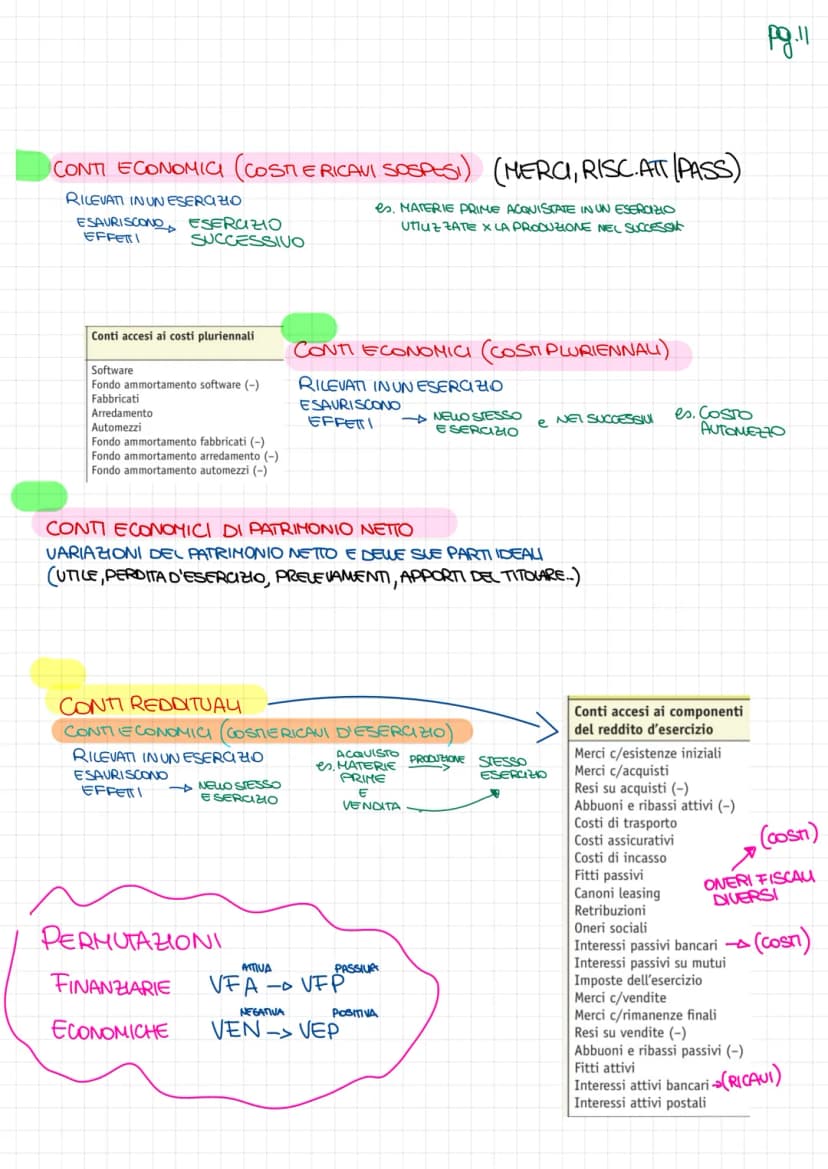 pg.11
CONTI ECONOMICI (COSTI E RICAVI SOSPESI) (MERCI, RISC.ATT|PASS)
RILEVATI IN UN ESERCIZIO
ESAURISCONO → ESERCIZIO
EFFETTI SUCCESSIVO
es. MATERIE PRIME ACQUISTATE IN UN ESERCIZIO
UTILIZZATE X LA PRODUZIONE NEL SUCCESSIVO
Conti accesi ai costi pluriennali
Software
Fondo ammortamento software (–)
Fabbricati
Arredamento
Automezzi
Fondo ammortamento fabbricati (–)
Fondo ammortamento arredamento (–)
Fondo ammortamento automezzi (–)
CONTI ECONOMICI (COSTI PLURIENNALI)
RILEVATI IN UN ESERCIZIO
ESAURISCONO
EFFETTI → NELLO STESSO
ESERCIZIO
e NEI SUCCESSIVI
es. COSTO
AUTOMEZZO
CONTI ECONOMICI DI PATRIMONIO NETTO
VARIAZIONI DEL PATRIMONIO NETTO E DELLE SUE PARTI IDEALI
(UTILE, PERDITA D'ESERCIZIO, PRELEVAMENTI, APPORTI DEL TITOLARE..)
CONTI REDDITUALI
CONTI ECONOMICI (COSTI E RICAVI D'ESERCIZIO)
RILEVATI IN UN ESERCIZIO
ESAURISCONO
EFFETTI → NELLO STESSO
ESERCIZIO
ACQUISTO
es. MATERIE
PRIME
E
VENDITA
PRODUZIONE
STESSO
ESERCIZIO
Conti accesi ai componenti
del reddito d'esercizio
Merci c/esistenze iniziali
Merci c/acquisti
Resi su acquisti (–)
Abbuoni e ribassi attivi (–)
Costi di trasporto
Costi assicurativi
Costi di incasso
Fitti passivi
Canoni leasing
Retribuzioni
Oneri sociali
Interessi passivi bancari → (COSTI)
Interessi passivi su mutui
Imposte dell'esercizio
Merci c/vendite
Merci c/rimanenze finali
Resi su vendite (–)
Abbuoni e ribassi passivi (–)
Fitti attivi
Interessi attivi bancari → (RICAVI)
Interessi attivi postali
(COSTI)
ONERI FISCALI
DIVERSI
PERMUTAZIONI
ATTIVA PASSIVA
FINANZIARIE VFA → VFP
NEGATIVA POSITIVA
ECONOMICHE VEN -> VEP